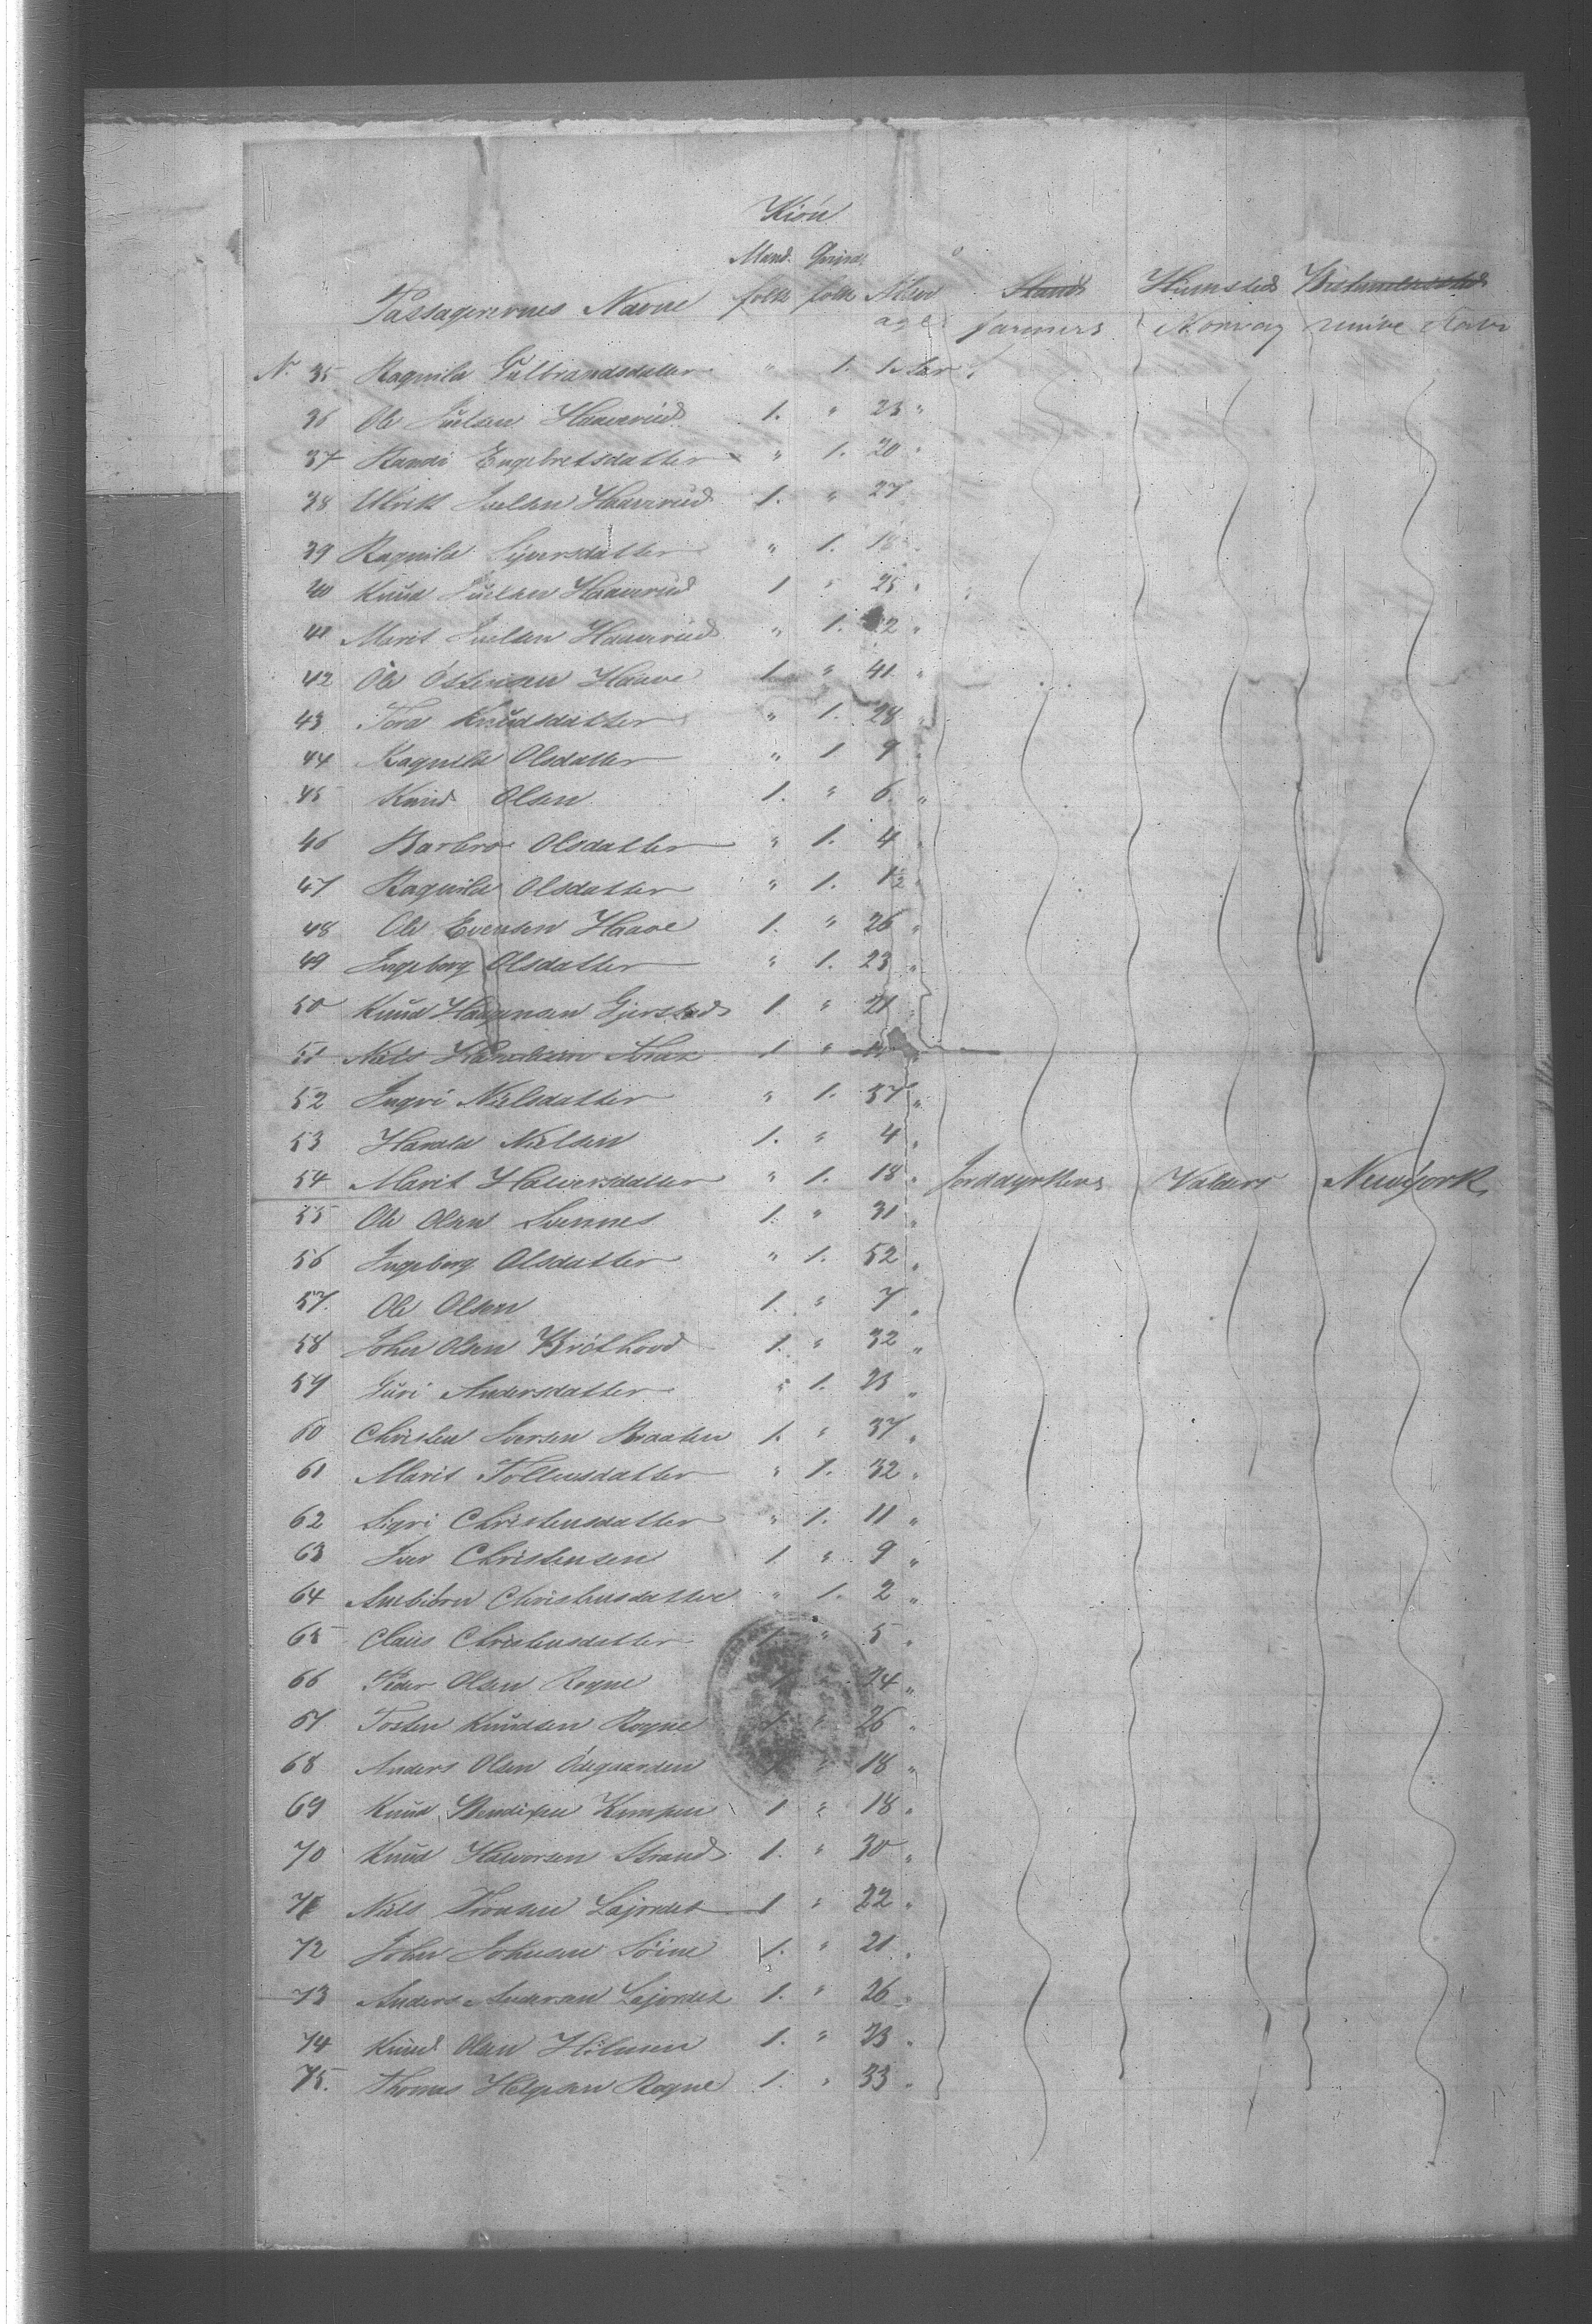 Kiön
Mand. Qvind.
Passagerernes Navne folk folk Alder Stand Hiemsted Bestemmelsessted
age farmers Norway unive State
No. 35 Ragnild Gulbrandsdatter " 1. 1 Aar
36 Ole Juelsen Haaverud 1. " 23 "
37 Randi Engebretsdatter " 1. 20 "
38 Ulrik Juelsen Haaverud 1. " 27
39 Ragnild Syversdatter " 1. 18 "
40 Knud Juelsen Haaverud 1 " 25 "
41 Marit Juelsen Haaverud " 1. 2 "
42 Ole Ostensen Haave 1. " 41 "
43 Tora Knudsdatter " 1. 28 "
44 Ragnild Olsdatter " 1 9 "
45 Knud Olsen 1. " 6 "
46 Barbro Olsdatter " 1. 4 "
47 Ragnild Olsdatter " 1. 1½ "
48 Ole Evensen Haave 1. " 26 "
49 Ingeborg Olsdatter " 1. 23 "
50 Knud Haagensen Gjersted 1 " 21 "
51 Niels 1 "
52 Ingri Nielsdatter " 1. 37 "
53 Harald Nielsen 1. " 4 "
54 Marit Halvorsdatter " 1. 18 " Jorddyrkere Valders Newyork
55 Ole Olsen Svennes 1. " 31 "
56 Ingeborg Olsdatter " 1. 52 "
57. Ole Olsen 1. " 7 "
58 John Olsen Bröthoved 1. " 32 "
59 Guri Andersdatter " 1. 23 "
60 Christen Iversen Braaten 1. " 37 "
61 Marit Tollevsdatter " 1. 32 "
62 Sigri Christensdatter " 1. 11 "
63 Iver Christensen 1 " 9 "
64 Christensdatter " 1. 2 "
65 Claus Christensdatter 1. " 5 "
66 Peder Olsen Rogne 1. " 24 "
67 Tosten Knudsen Rogne 1 " 26 "
68 Anders Olsen Ödegaarden " 18 "
69 Knud Bendixen Kampen 1 " 18 "
70 Knud Halvorsen Strand 1. " 30 "
71 Niels Lajordet 1 " 22 "
72 John Johnsen Söine 1. " 21 "
73 Anders Andersen Lajordet 1. " 26 "
74 Knud Olsen Hilmen 1. " 23 "
75. Thomas Helgesen Rogne 1. " 33 "